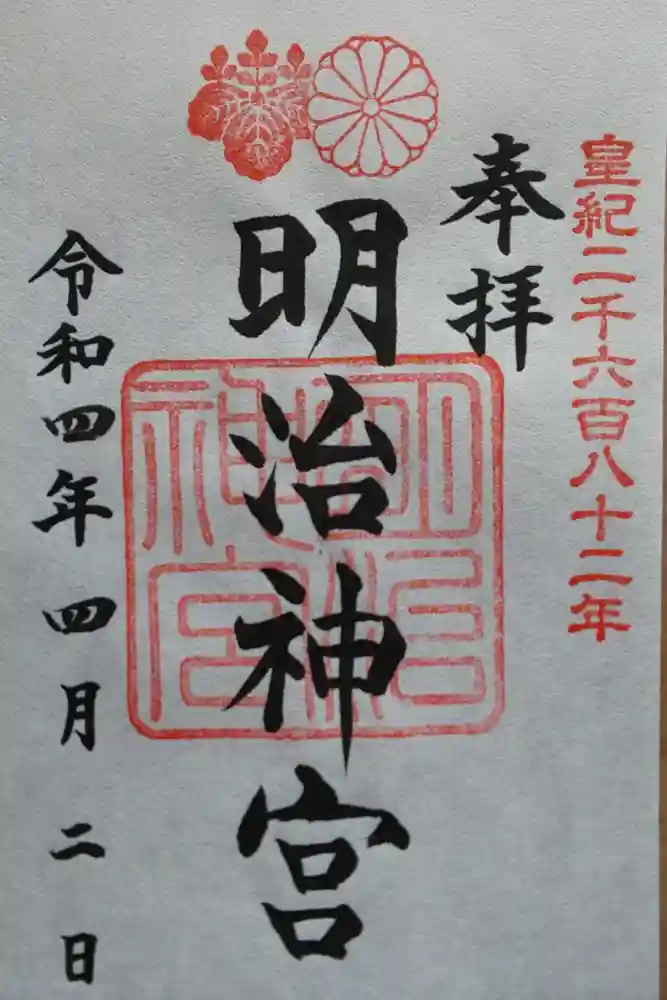 皇紀二千六百八十二年
奉拝
明治神宮
明治神宮
令和四年四月二日